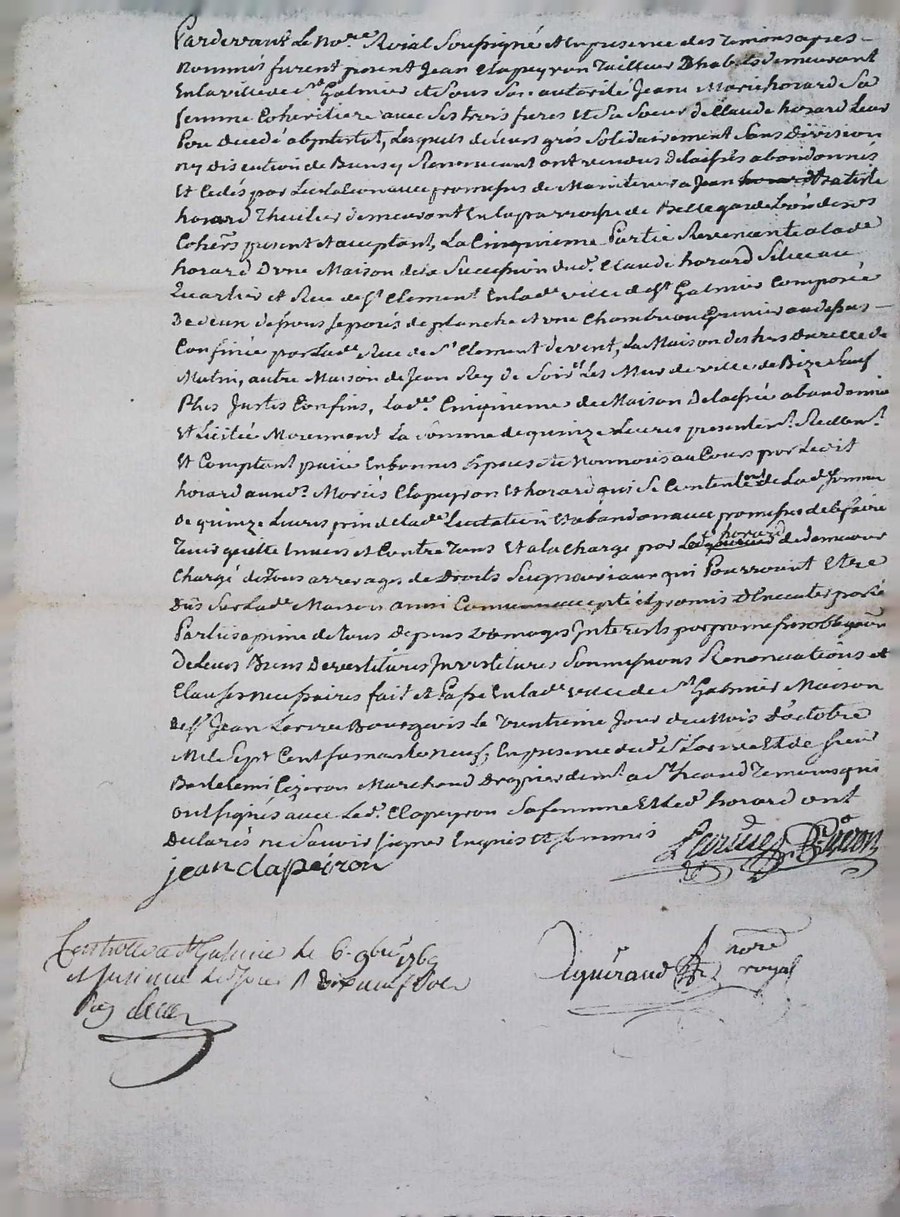 Pardevant Le No.re Roial Soussigné et En presence des Temoins apres
Nommés furent present Jean Clapeyron Tailleur D'habits demeurant
En la ville de St Galmier et Sous Son autorité Jeane Marie horard Sa
femme Coheritiere avec Ses trois freres et Sa Soeur de Claude horard Leur
Pere decedé abintestat, Lesquels de Leurs grés Solidairement Sans Division
Ny discution de Biens y Renoncant ont vendus delaissés abandonnés
Et Cedés par Licitation avec promesses de Maintenir a Jean Batiste
horard Thuilier demeurant En la parroisse de Bellegarde L'un de ses
Cohers present et acceptant, La Cinquieme Partie Revenante a lad.e
horard D'une Maison de la Succession dud. Claude horard Scituée au
Quartier et Rue de St Clement En lad.e ville de St Galmier Composée
De deux dessous separés de planche et une Chambre ou Grenier au dessus
Confinée par Lad.e Rue de St Clement de vent, La Maison des de
Matin, autre Maison de Jean Rey de Soir et Les Murs de ville de Bize Sauf
Plus Justes Confins, Lad.e Cinquieme de Maison delaissée abandonnée
Et Licitée Moiennant La somme de quinze Livres presentem.t Reellem.t
Et Comptant paiée En bonnes Especes de Monnois au Cours par Ledit
horard auxd. Mariés Clapeyron Et horard qui Se Contentent de Lad. somme
De quinze Livres prix de lad.e Licitation Et abandon avec promesses de le faire
Tenir quitte Envers et Contre Tous Et a la Charge par Led. horard de demeurer
Chargé de Tous arrerages de Droits Seigneuriaux qui Pourroient Etre
Dûs Sur Lad.e Maison ainsi Convenu accepté et promis D'Executer par Les
Parties a peine de tous Depens Domages Interests par promesses obligaon
De Leurs Biens Devestitures Investitures Soumissions Renonciations et
Clauses necessaires fait et Passé En lad.e ville de St Galmier Maison
de Sr Jean Bourgeois le Trentieme Jour du Mois d'octobre
Mil Sept Cent Soixante neuf, En presence dud. Sr Et de Sieur
Bartelemi Cizeron Marchand Drapier dem.t a St heand Temoins qui
ont signés avec Led. Clapeyron Sa femme Et Led. horard ont
Declarés ne Savoir Signer Enquis et Sommés
jean clapeiron
Controllé a St Galmier le 6. 9bre 1769
et le d. Jour R dix neuf Sols
nore
royal